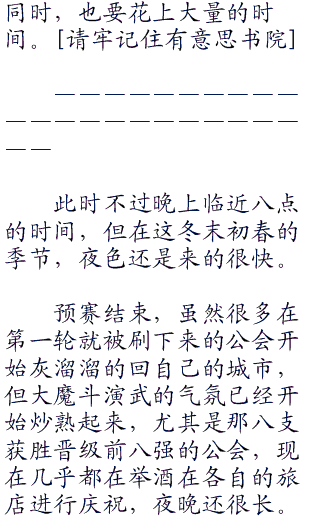 同时，也要花上大量的时
间。[请牢记住有意思书院]
－－－－－－－－－－
－－－－－－－－－－－－
－－
此时不过晚上临近八点
的时间，但在这冬末初春的
季节，夜色还是来的很快。
预赛结束，虽然很多在
第一轮就被刷下来的公会开
始灰溜溜的回自己的城市，
但大魔斗演武的气氛已经开
始炒熟起来，尤其是那八支
获胜晋级前八强的公会，现
在几乎都在举酒在各自的旅
店进行庆祝，夜晚还很长。